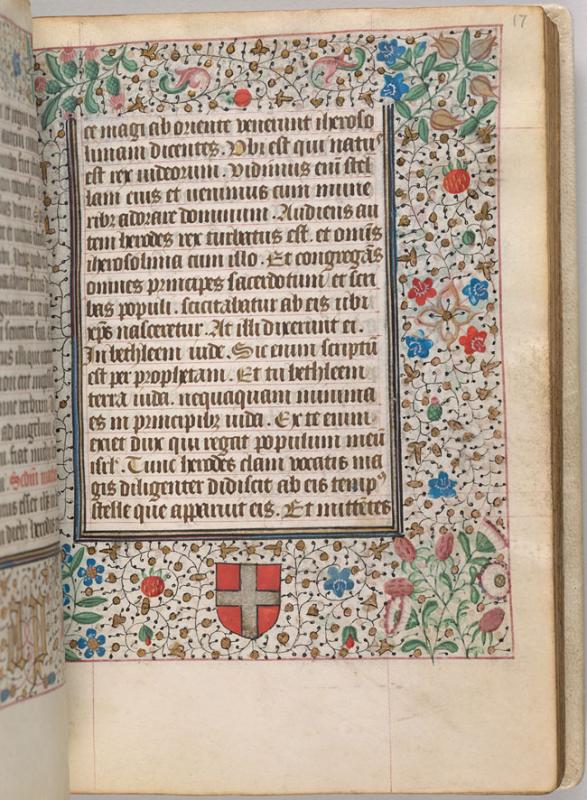 17
ce magi ab oriente venerunt iheroso
limam dicentes. Ubi est qui natꝰ
est rex iudeorum. Vidimus enī stel
lam eius et uenimus cum mune
ribꝫ adorare dominum. Audiens au
tem herodes rex turbatus est. et omīs
iherosolima cum illo. Et congregās
omnes principes sacerdotum et scri
bas populi. sciscitabatur ab eis ubi
xp̄s nasceretur. At illi dixerunt ei.
In bethleem iude. Sic enim scriptū
est per prophetam. Et tu bethleem
terra iuda. nequaquam minima
es in principibꝫ iuda. Ex te enim
exiet dux qui regat populum meū
isrl̄. Tunc herodes clam vocatis ma
gis diligenter didiscit ab eis tempꝰ
stelle que apparuit eis. Et mittētes